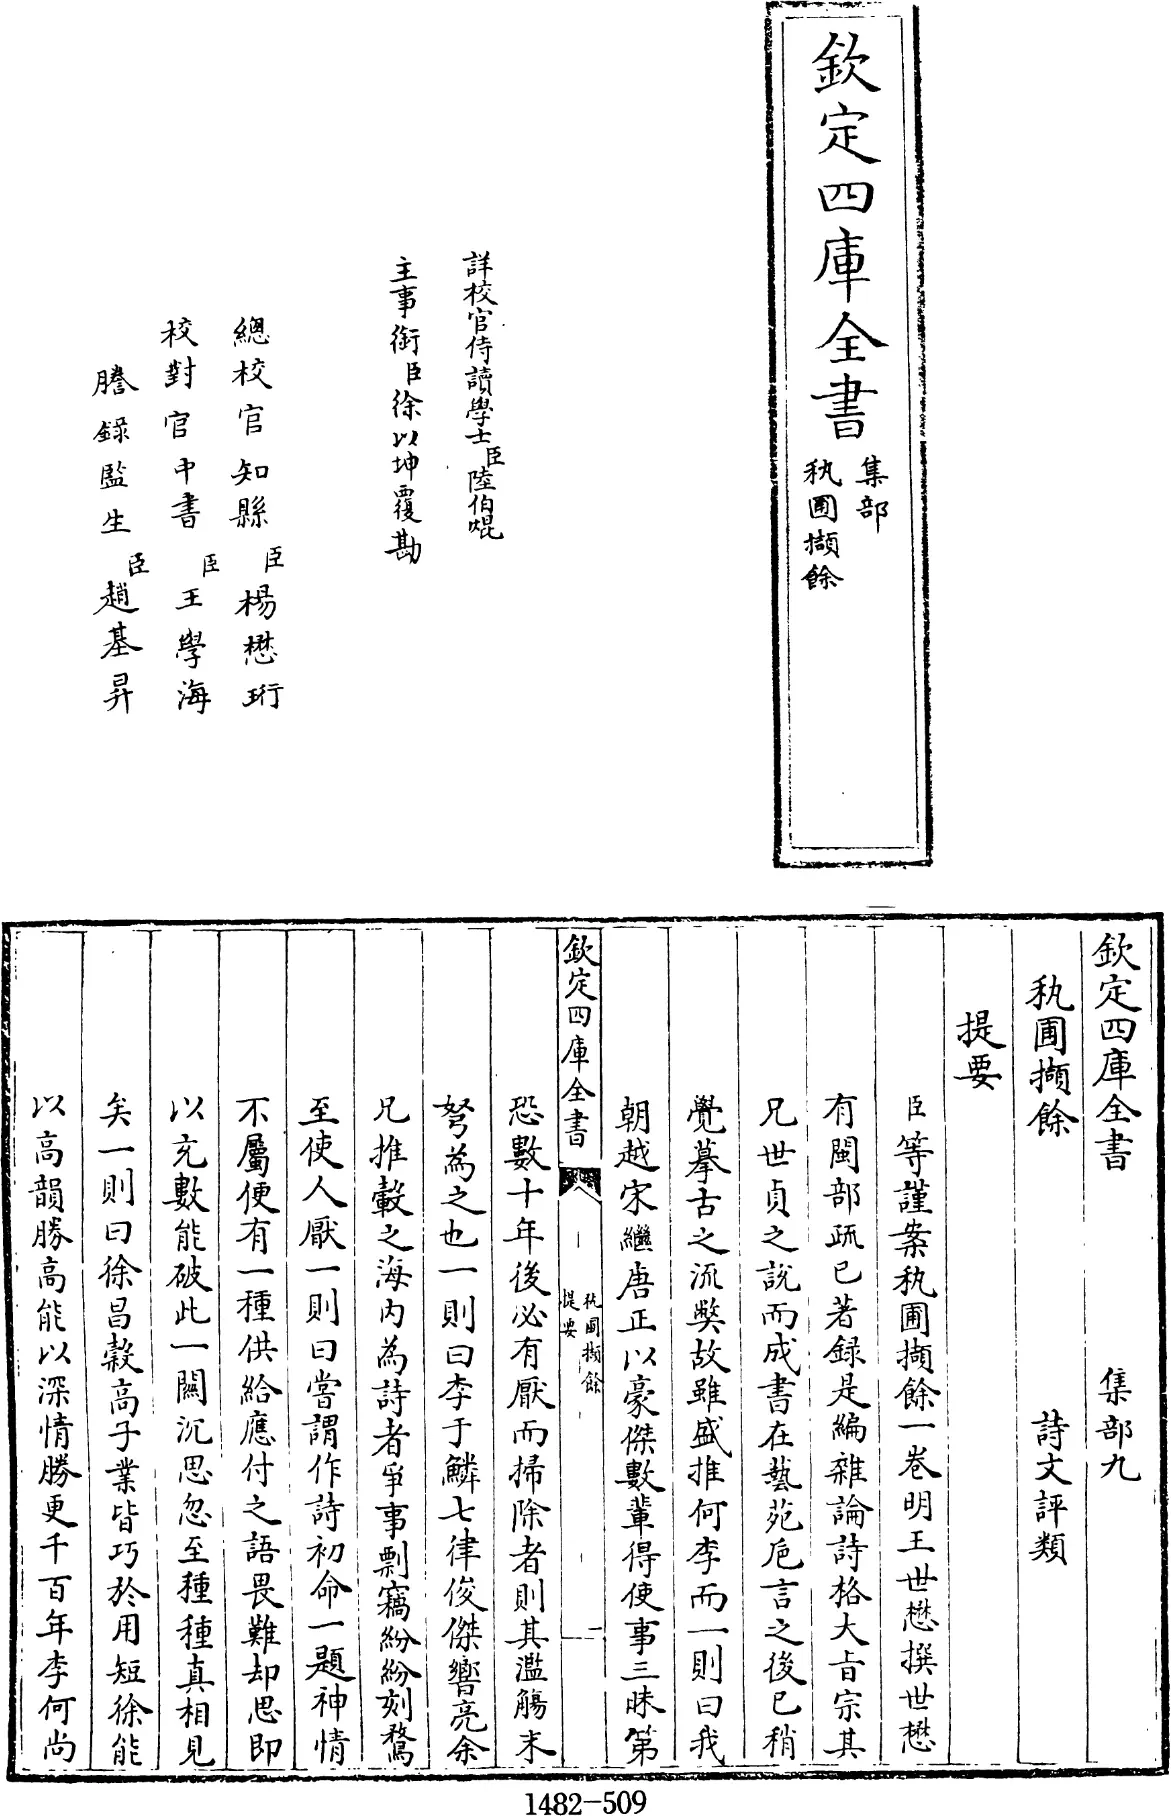 欽定四庫全書
集部
秇圃擷餘
詳校官侍讀學士臣陸伯焜
主事銜臣徐以坤覆勘
總校官知縣臣楊懋珩
校對官中書臣王學海
謄錄監生臣趙基昇
欽定四庫全書 集部九
秇圃擷餘 詩文評類
提要
臣等謹案秇圃擷餘一卷明王世懋撰世懋
有閩部疏已著録是編雜論詩格大旨宗其
兄世貞之說而成書在藝苑巵言之後已稍
覺摹古之流弊故雖盛推何李而一則曰我
朝越宋繼唐正以豪傑數輩得使事三昧第
欽定四庫全書
秇圃擷餘
提要
一
恐數十年後必有厭而掃除者則其濫觴末
弩為之也一則曰李于鱗七律俊傑響亮余
兄推轂之海内為詩者爭事剽竊紛紛刻鶩
至使人厭一則曰嘗謂作詩初命一題神情
不屬便有一種供給應付之語畏難却思即
以充數能破此一關沉思忽至種種真相見
矣一則曰徐昌榖高子業皆巧於用短徐能
以高韻勝高能以深情勝更千百年李何尚
1482-509